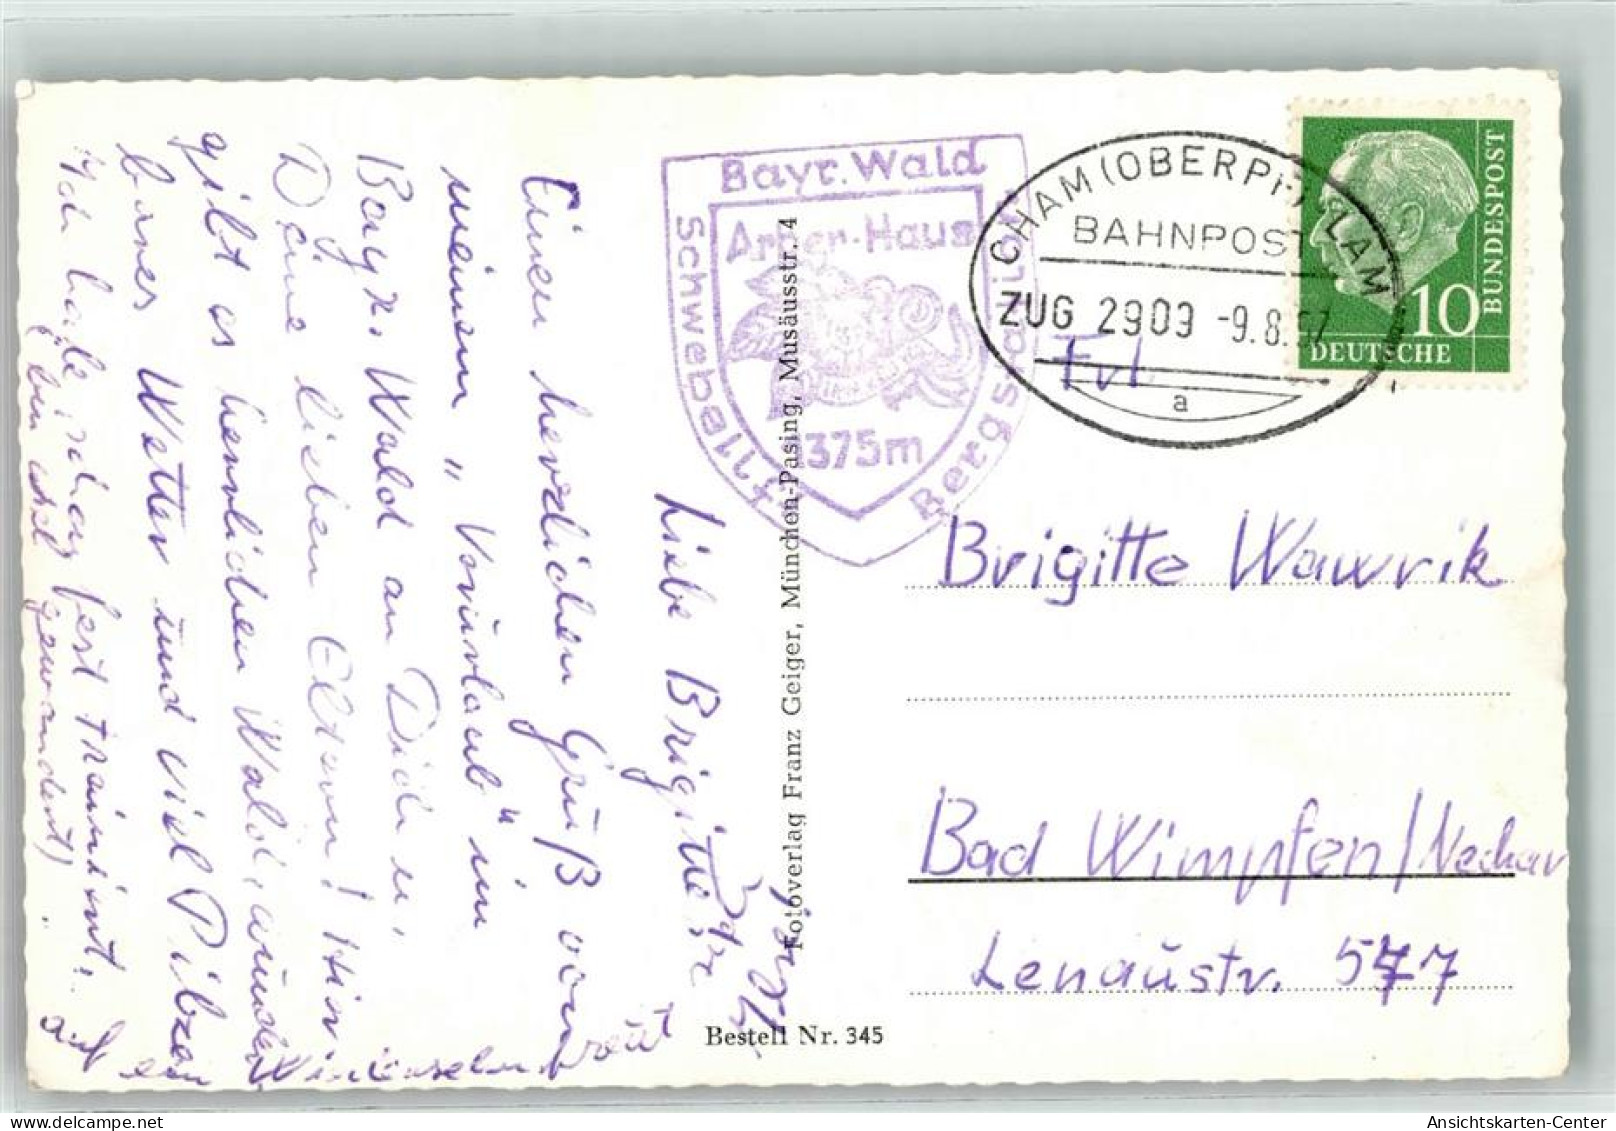 Liebe Brigitte
Einen herzlichen Gruß von
meinem „Vorurlaub" im
Bayr. Wald an Dich u.
Deine lieben Eltern! Hier
gibt es herrlichen Wald, wunder
bares Wetter und viel Pilze
Ich habe schon fest trainiert.
(bin schon gewandert)
Bayr. Wald
Arber-Haus
1375m
Schwebelift
Bergstation
Fotoverlag Franz Geiger, München-Pasing, Musäusstr. 4
Bestell Nr. 345
CHAM (OBERPF) LAM
BAHNPOST
ZUG 2909 -9.8.57
a
10
DEUTSCHE
BUNDESPOST
Frl.
Brigitte Wawrik
Bad Wimpfen/Neckar
Lenaustr. 577
Ansichtskarten-Center